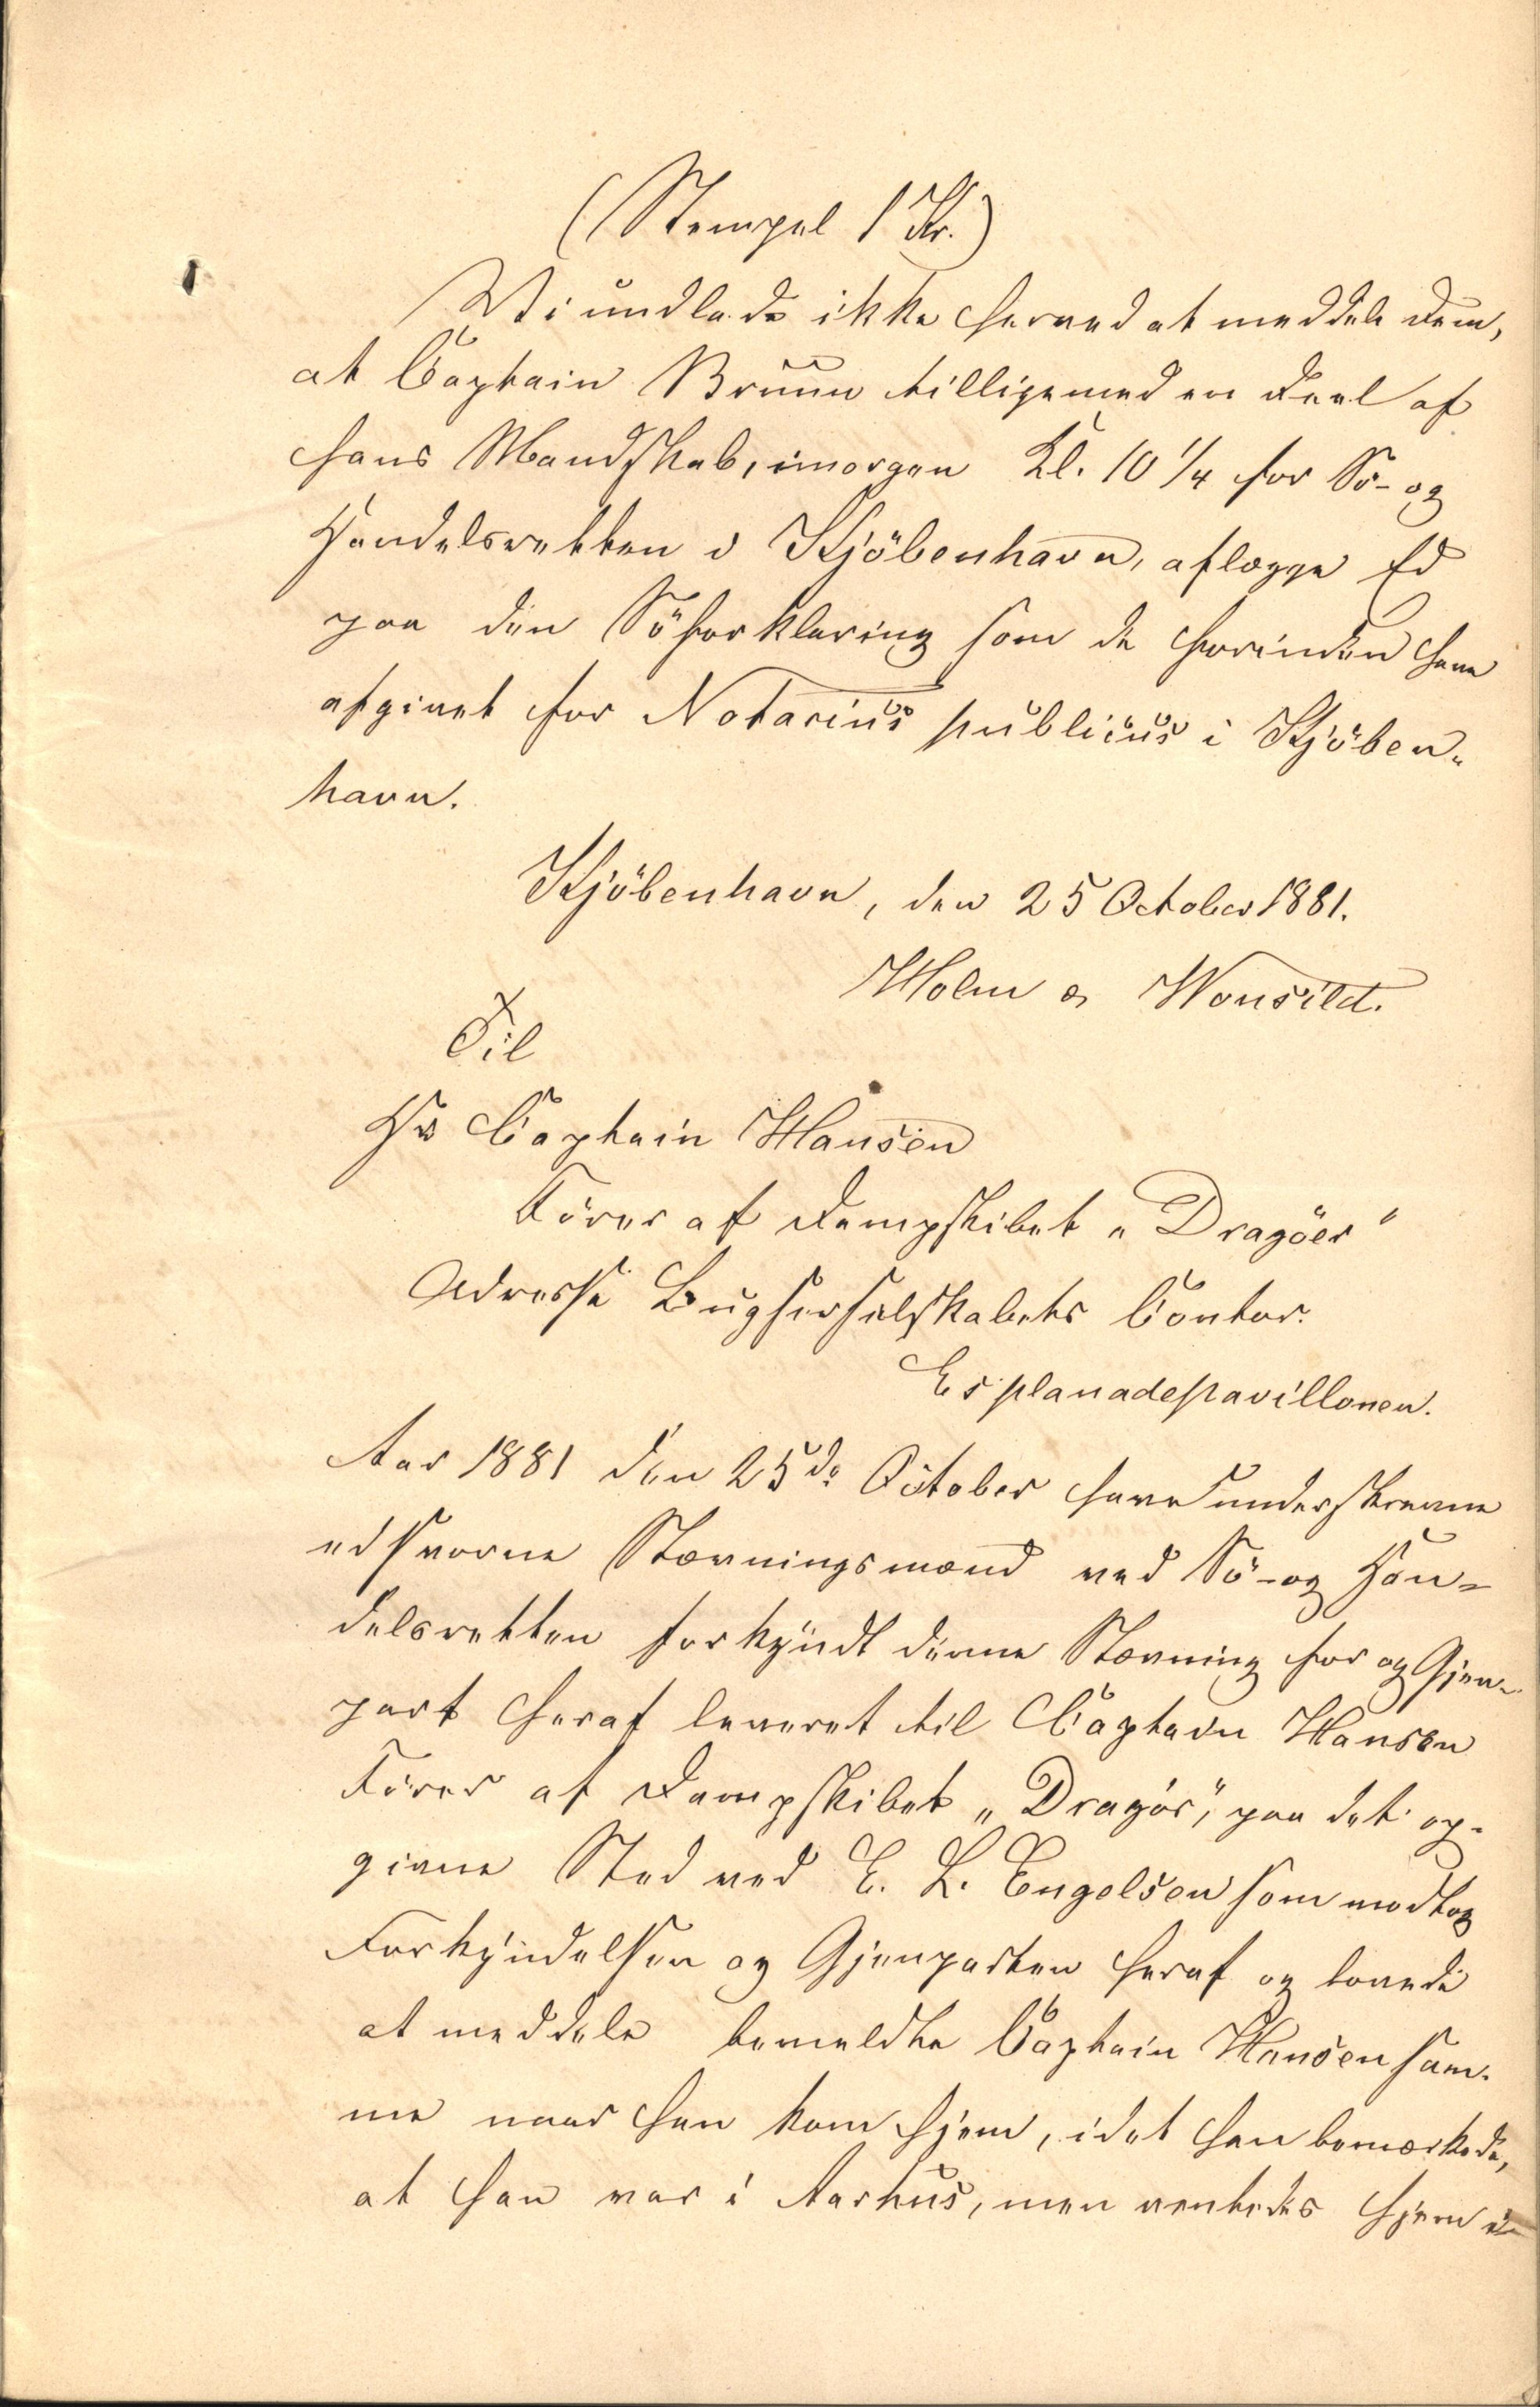 (Stempel 1 Kr.)
Vi undlade ikke herved at meddele Dem,
at Captain Bruun tilligemed en Deel af
hans Mandskab, imorgen Kl. 10 1/4 for Sö- og
Handelsretten i Kjöbenhavn, aflægge Ed
paa den Söforklaring som de forinden have
afgivet for Notarius publicus i Kjöben-
havn.
Kjöbenhavn, den 25 October 1881.
Holm & Wonsild.
Til
Hr Captain Hansen
Förer af Dampskibet "Dragöer"
Adresse Bugserselskabets Contor.
Esplanadepavillonen.
Aar 1881 den 25de October have underskrevne
edsvorne Stævningsmænd ved Sö- og Han-
delsretten forkyndt denne Stævning for og Gjen-
part heraf leveret til Captain Hansen
Förer af Dampskibet "Dragör", paa det op-
givne Sted ved E. L. Engelsen som modtog
Forkyndelsen og Gjenparten heraf og lovede
at meddele bemeldte Captain Hansen sam-
me naar han kom hjem, idet han bemærkede,
at han var i Aarhus, men ventedes hjem